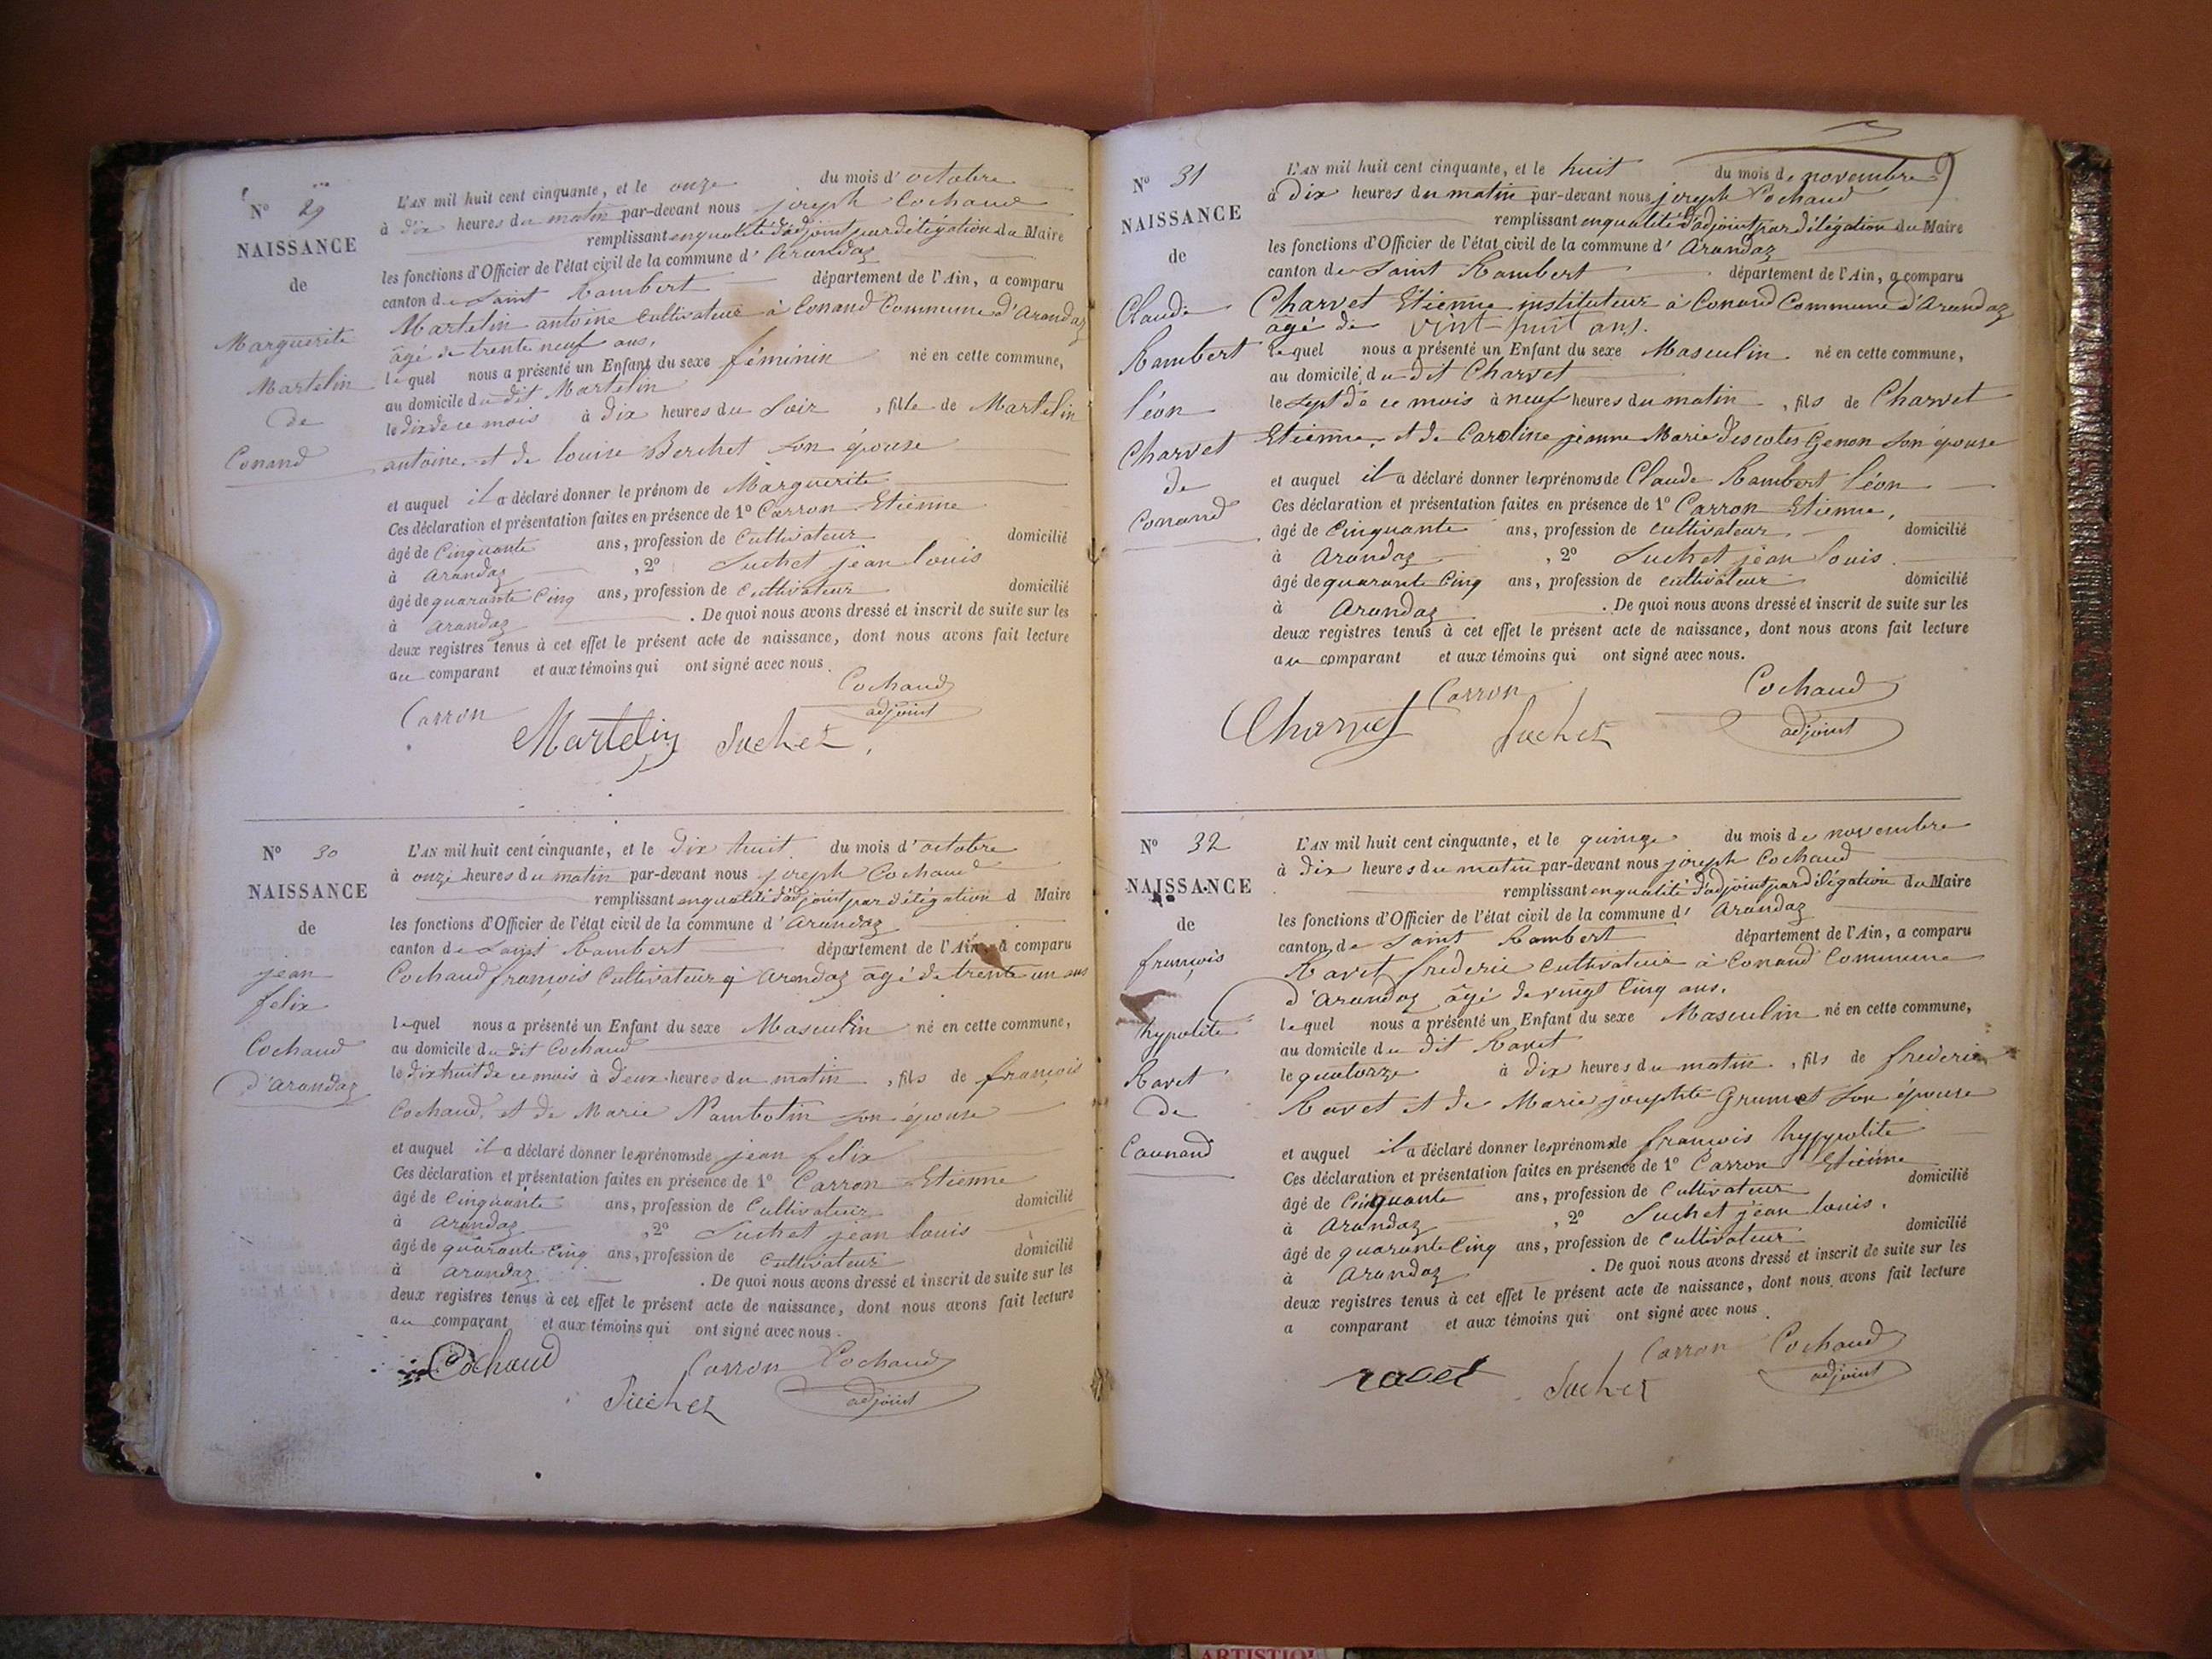 N° 29
NAISSANCE
de
Marguerite
Martelin
de
Conand
L'AN mil huit cent cinquante, et le onze du mois d'octobre
à dix heures du matin par-devant nous joseph Cochaud
remplissant en qualité d'adjoint par délégation du Maire
les fonctions d'Officier de l'état civil de la commune d'Arandaz
canton de Saint Rambert département de l'Ain, a comparu
Martelin antoine Cultivateur à Conand Commune d'Arandaz
âgé de trente neuf ans,
lequel nous a présenté un Enfant du sexe féminin né en cette commune,
au domicile du dit Martelin
le dix de ce mois à dix heures du Soir, fille de Martelin
antoine et de louise Berchet son épouse
et auquel il a déclaré donner le prénom de Marguerite
Ces déclaration et présentation faites en présence de 1° Carron Etienne
âgé de Cinquante ans, profession de Cultivateur domicilié
à Arandaz, 2° Suchet jean louis
âgé de quarante Cinq ans, profession de Cultivateur domicilié
à Arandaz. De quoi nous avons dressé et inscrit de suite sur les
deux registres tenus à cet effet le présent acte de naissance, dont nous avons fait lecture
au comparant et aux témoins qui ont signé avec nous.
Cochaud
adjoint
Carron
Martelin Suchet
N° 30
NAISSANCE
de
jean
felix
Cochaud
d'Arandaz
L'AN mil huit cent cinquante, et le dix huit du mois d'octobre
à onze heures du matin par-devant nous joseph Cochaud
remplissant en qualité d'adjoint par délégation d Maire
les fonctions d'Officier de l'état civil de la commune d'Arandaz
canton de Saint Rambert département de l'Ain, a comparu
Cochaud françois Cultivateur à Arandaz âgé de trente un ans
lequel nous a présenté un Enfant du sexe Masculin né en cette commune,
au domicile du dit Cochaud
le dix huit de ce mois à deux heures du matin, fils de françois
Cochaud et de Marie Nambotin son épouse
et auquel il a déclaré donner les prénoms de jean felix
Ces déclaration et présentation faites en présence de 1° Carron Etienne
âgé de Cinquante ans, profession de Cultivateur domicilié
à Arandaz, 2° Suchet jean louis
âgé de quarante Cinq ans, profession de Cultivateur domicilié
à Arandaz. De quoi nous avons dressé et inscrit de suite sur les
deux registres tenus à cet effet le présent acte de naissance, dont nous avons fait lecture
au comparant et aux témoins qui ont signé avec nous.
Cochaud Carron Cochaud
Suchet adjoint
N° 31
NAISSANCE
de
Claude
Rambert
léon
Charvet
de
Conand
L'AN mil huit cent cinquante, et le huit du mois de novembre
à Dix heures du matin par-devant nous joseph Cochaud
remplissant en qualité d'adjoint par délégation du Maire
les fonctions d'Officier de l'état civil de la commune d'Arandaz
canton de Saint Rambert département de l'Ain, a comparu
Charvet Etienne instituteur à Conand Commune d'Arandaz
âgé de vint-huit ans.
lequel nous a présenté un Enfant du sexe Masculin né en cette commune,
au domicile du dit Charvet
le Sept de ce mois à neuf heures du matin, fils de Charvet
Etienne, et de Caroline jeanne Marie Descotes Genon son épouse
et auquel il a déclaré donner les prénoms de Claude Rambert léon
Ces déclaration et présentation faites en présence de 1° Carron Etienne,
âgé de Cinquante ans, profession de cultivateur domicilié
à Arandaz, 2° Suchet jean louis.
âgé de quarante Cinq ans, profession de cultivateur domicilié
à Arandaz. De quoi nous avons dressé et inscrit de suite sur les
deux registres tenus à cet effet le présent acte de naissance, dont nous avons fait lecture
au comparant et aux témoins qui ont signé avec nous.
Carron Cochaud
Charvet Suchet adjoint
N° 32
NAISSANCE
de
françois
hypolite
Ravet
de
Counand
L'AN mil huit cent cinquante, et le quinze du mois de novembre
à Dix heures du matin par-devant nous joseph Cochaud
remplissant en qualité d'adjoint par délégation du Maire
les fonctions d'Officier de l'état civil de la commune d'Arandaz
canton de Saint Rambert département de l'Ain, a comparu
Ravet frederic cultivateur à Conand Commune
d'Arandaz âgé de vingt Cinq ans.
lequel nous a présenté un Enfant du sexe Masculin né en cette commune,
au domicile du dit Ravet
le quatorze à dix heures du matin, fils de frederic
Ravet et de Marie josephte Grumet son épouse
et auquel il a déclaré donner les prénoms de françois hyppolite
Ces déclaration et présentation faites en présence de 1° Carron Etienne
âgé de Cinquante ans, profession de Cultivateur domicilié
à Arandaz, 2° Suchet jean louis.
âgé de quarante Cinq ans, profession de Cultivateur domicilié
à Arandaz. De quoi nous avons dressé et inscrit de suite sur les
deux registres tenus à cet effet le présent acte de naissance, dont nous avons fait lecture
a comparant et aux témoins qui ont signé avec nous.
Carron Cochaud
ravet Suchet adjoint